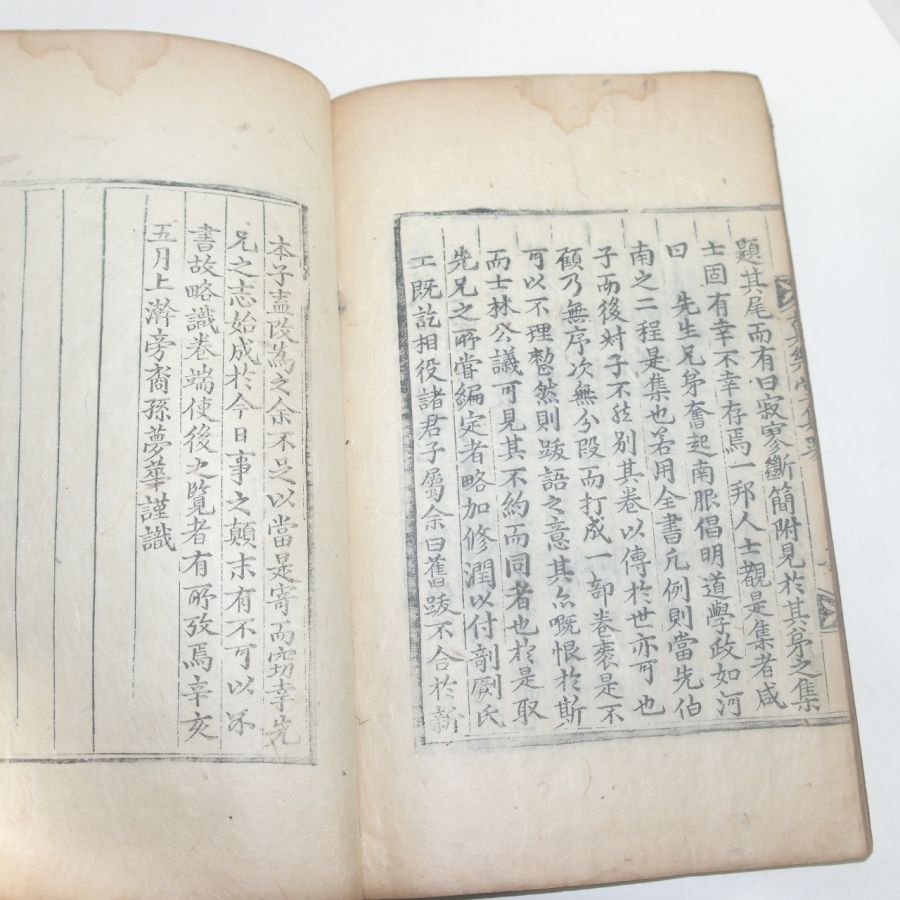 題其尾而有曰寂寥斷簡附見於其弟之集
士固有幸不幸存焉一邦人士觀是集者咸
曰 先生兄弟奮起南服倡明道學政如河
南之二程是集也若用全書凡例則當先伯
子而後对子不然别其卷以傳於世亦可也
顧乃無序次無分段而打成一部卷袠是不
可以不理整然則跋語之意其亦嘅恨於斯
而士林公議可見其不約而同者也於是取
先兄之所嘗編定者略加修潤以付剞劂氏
工既訖相役諸君子屬余曰舊跋不合於新
本子盍改為之余不足以當是寄而窃幸先
兄之志始成於今日事之顛末有不可以不
書故略識卷端使後之覽者有所攷焉辛亥
五月上澣旁裔孫夢華謹識